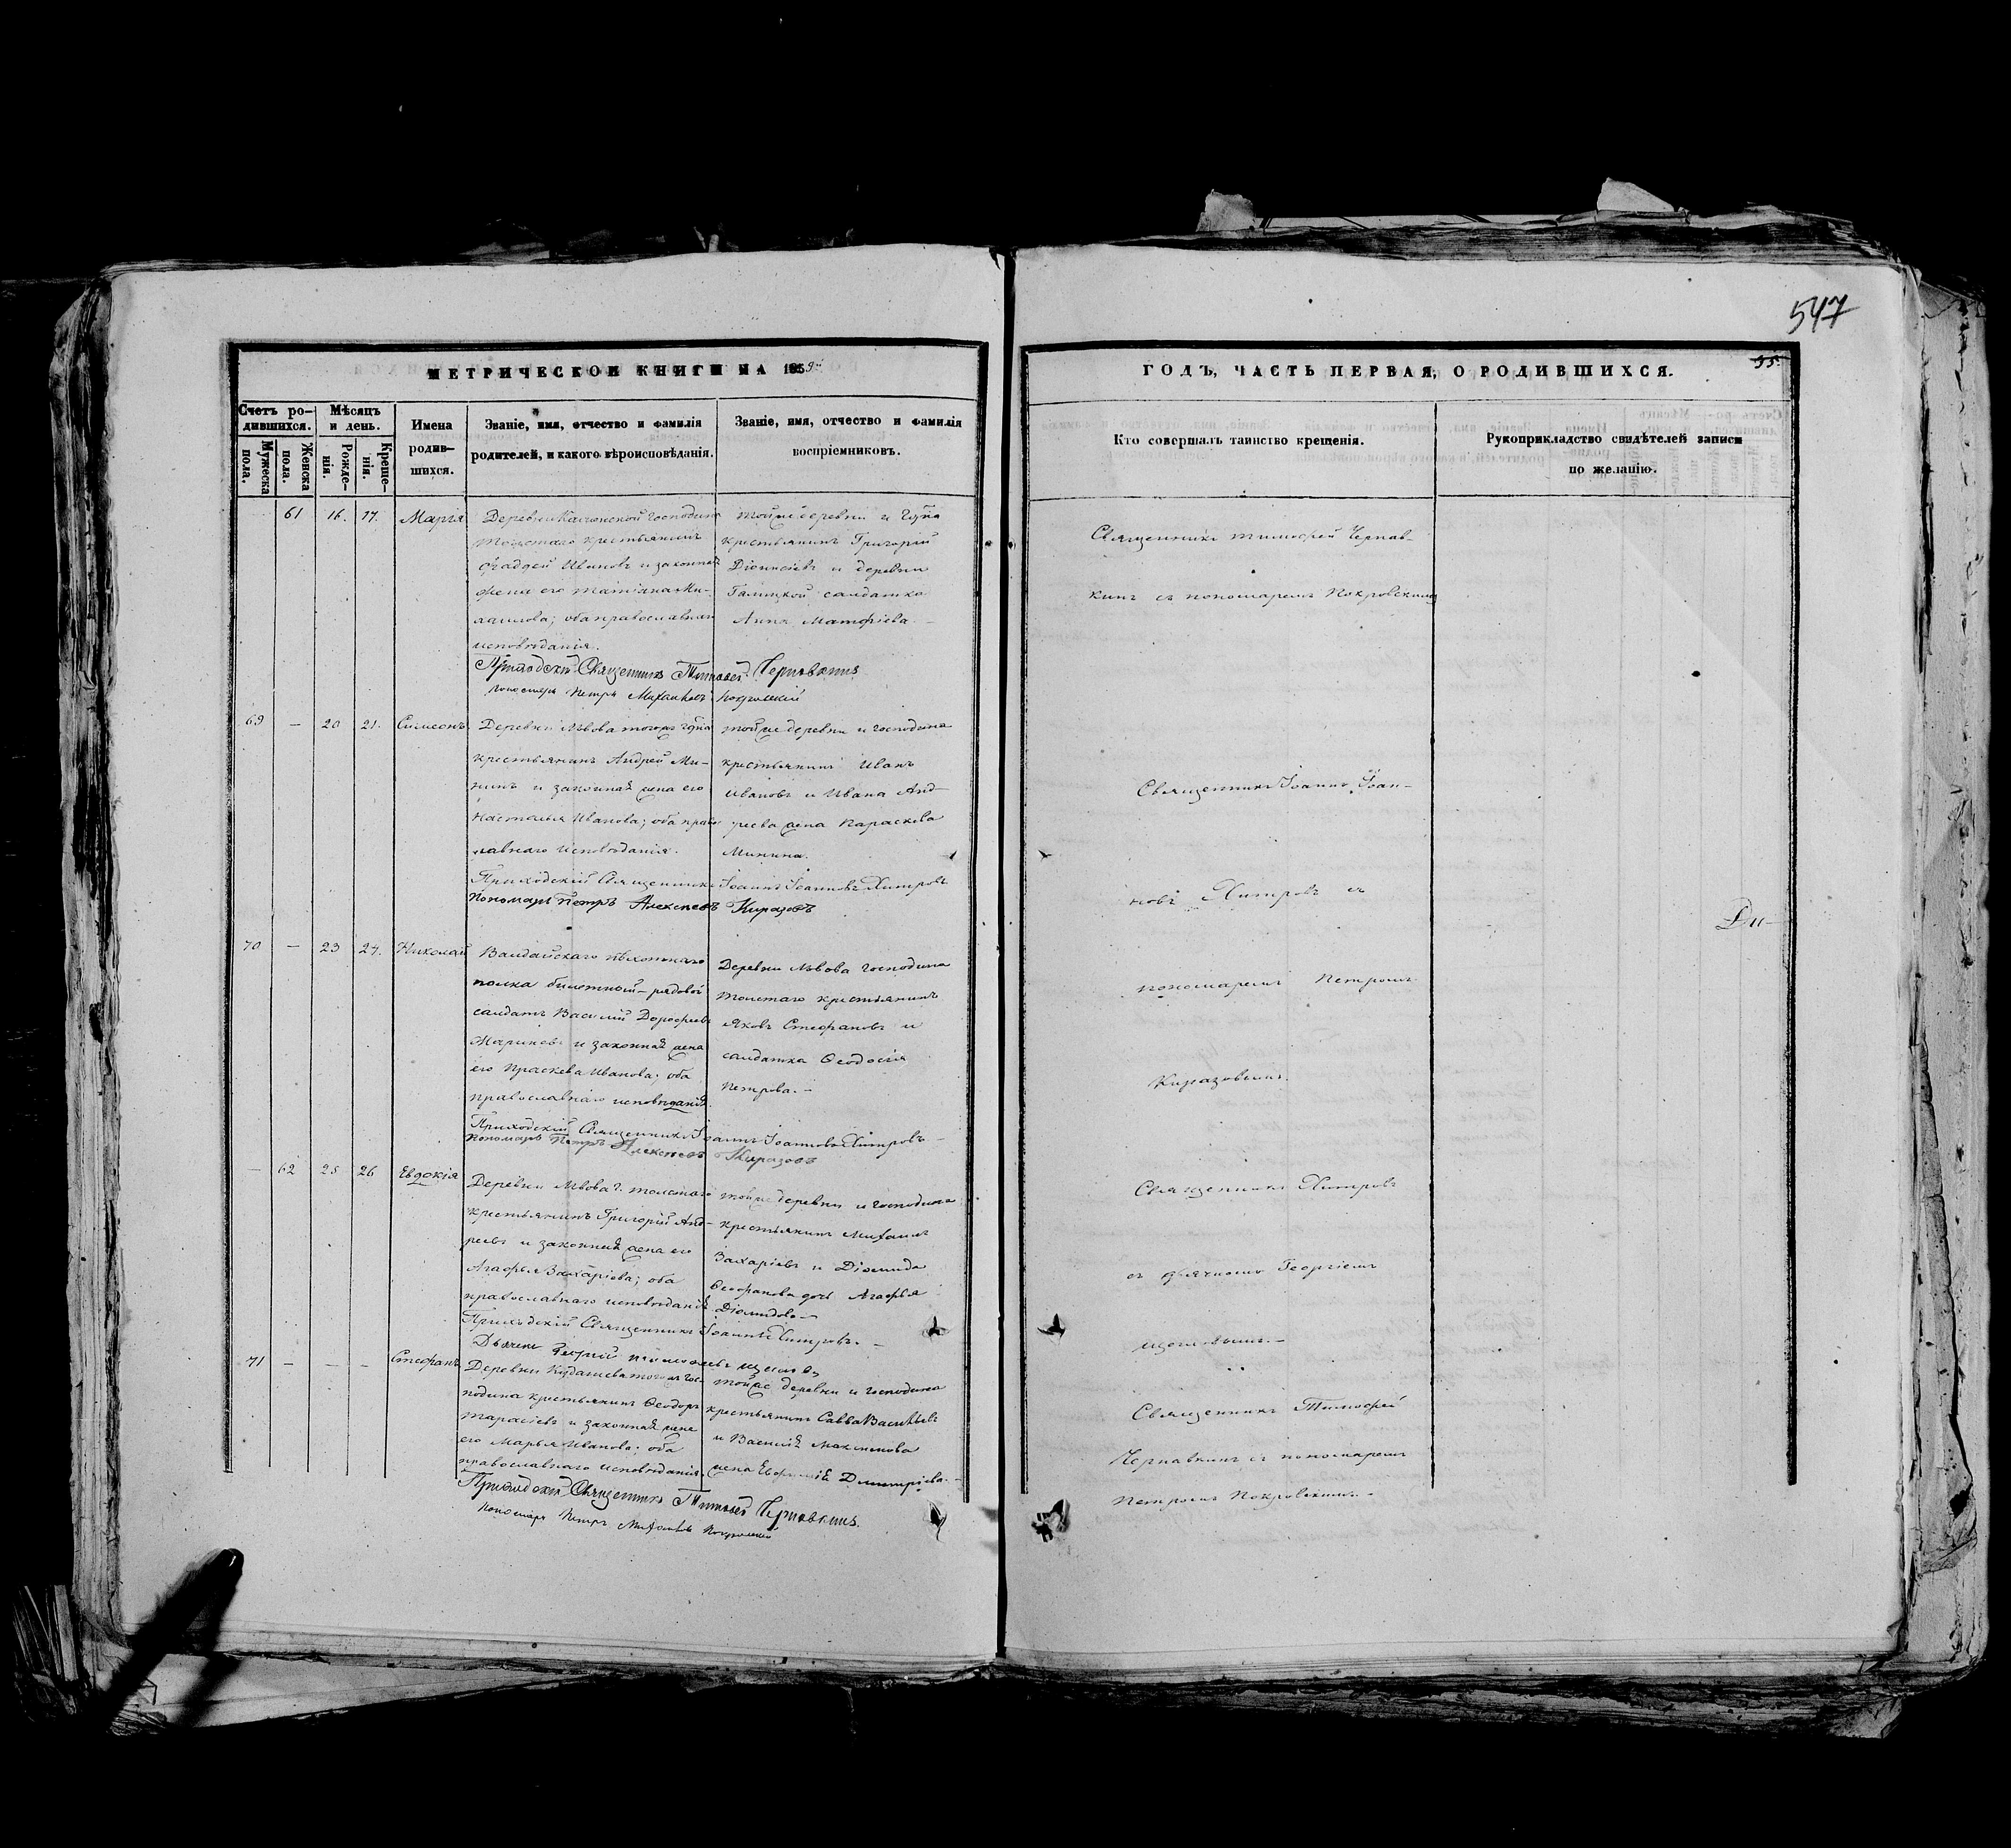 547
35.
МЕТРИЧЕСКОЙ КНИГИ НА 1859й
ГОДЪ, ЧАСТЬ ПЕРВАЯ, О РОДИВШИХСЯ.
Счетъ ро-
дившихся.
Мужеска пола.
Женска пола.
Мѣсяцъ
и день.
Рожде-
нія.
Креще-
нія.
Имена
родив-
шихся.
Званіе, имя, отчество и фамилія
родителей, и какого вѣроисповѣданія.
Званіе, имя, отчество и фамилія
воспріемниковъ.
Кто совершалъ таинство крещенія.
Рукоприкладство свидѣтелей записи
по желанію.
61 16. 17. Марія
Деревни господина
Толстаго крестьянинъ
Фаддей Ивановъ и законная
жена его Татіяна Ми-
хаилова; оба православнаго
исповѣданія.
Тойже деревни и Гдна
крестьянинъ Григорій
Діонисіевъ и деревни
Галицкой салдатка
Анна Матфіева.
Священникъ Тимофей Чернав-
кинъ съ пономаремъ Покровскимъ
Приходскій Священникъ Тимофей Чернавкинъ
Пономарь Петръ Михайловъ Покровскій
69 — 20 21. Симеонъ
Деревни Львова тогоже Гдна
крестьянинъ Андрей Ми-
нинъ и законная жена его
Настасья Иванова; оба право-
славнаго исповѣданія.
Тойже деревни и господина
крестьянинъ Иванъ
Ивановъ и Ивана Анд-
реева жена Параскева
Минина.
Священникъ Іоаннъ Іоан-
новъ Хитровъ съ
пономаремъ Петромъ
Киразовымъ.
Ди-
Приходскій Священникъ Іоаннъ Іоанновъ Хитровъ
Пономарь Петръ Алексѣевъ Киразовъ
70 — 23 24. Николай
Валдайскаго пѣхотнаго
полка билетный рядовой
салдатъ Василій Дорофѣевъ
Мариневъ и законная жена
его Праскева Иванова; оба
православнаго исповѣданія.
Деревни Львова господина
Толстаго крестьянинъ
Яковъ Стефановъ и
салдатка Ѳеодосія
Петрова.—
Приходскій Священникъ Іоаннъ Іоанновъ Хитровъ
Пономарь Петръ Алексѣевъ Киразовъ
— 62 25 26 Евдокія
Деревни Львова г. Толстаго
крестьянинъ Григорій Анд-
реевъ и законная жена его
Агафья Захаріева; оба
православнаго исповѣданія
Тойже деревни и господина
крестьянинъ Михаилъ
Захаріевъ и Діомида
Ѳеофанова дочь Агафья
Діомидова—
Священникъ Хитровъ
съ дьячкомъ Георгіемъ
Щегловымъ.—
Приходскій Священникъ Іоаннъ Хитровъ.—
Дьячекъ Георгій
71 — — — Стефанъ
Деревни тогоже гос-
подина крестьянинъ Ѳеодоръ
Тарасіевъ и законная жена
его Марья Иванова; оба
православнаго исповѣданія.
Тойже деревни и господина
крестьянинъ Савва Васильевъ
и Василія Максимова
жена Евфимія Дмитріева.—
Священникъ Тимофей
Чернавкинъ съ пономаремъ
Петромъ Покровскимъ.—
Приходскій Священникъ Тимофей Чернавкинъ.
Пономарь Петръ Михайловъ Покровскій